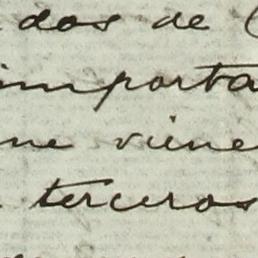 dos de
importa
ne viene
terceros